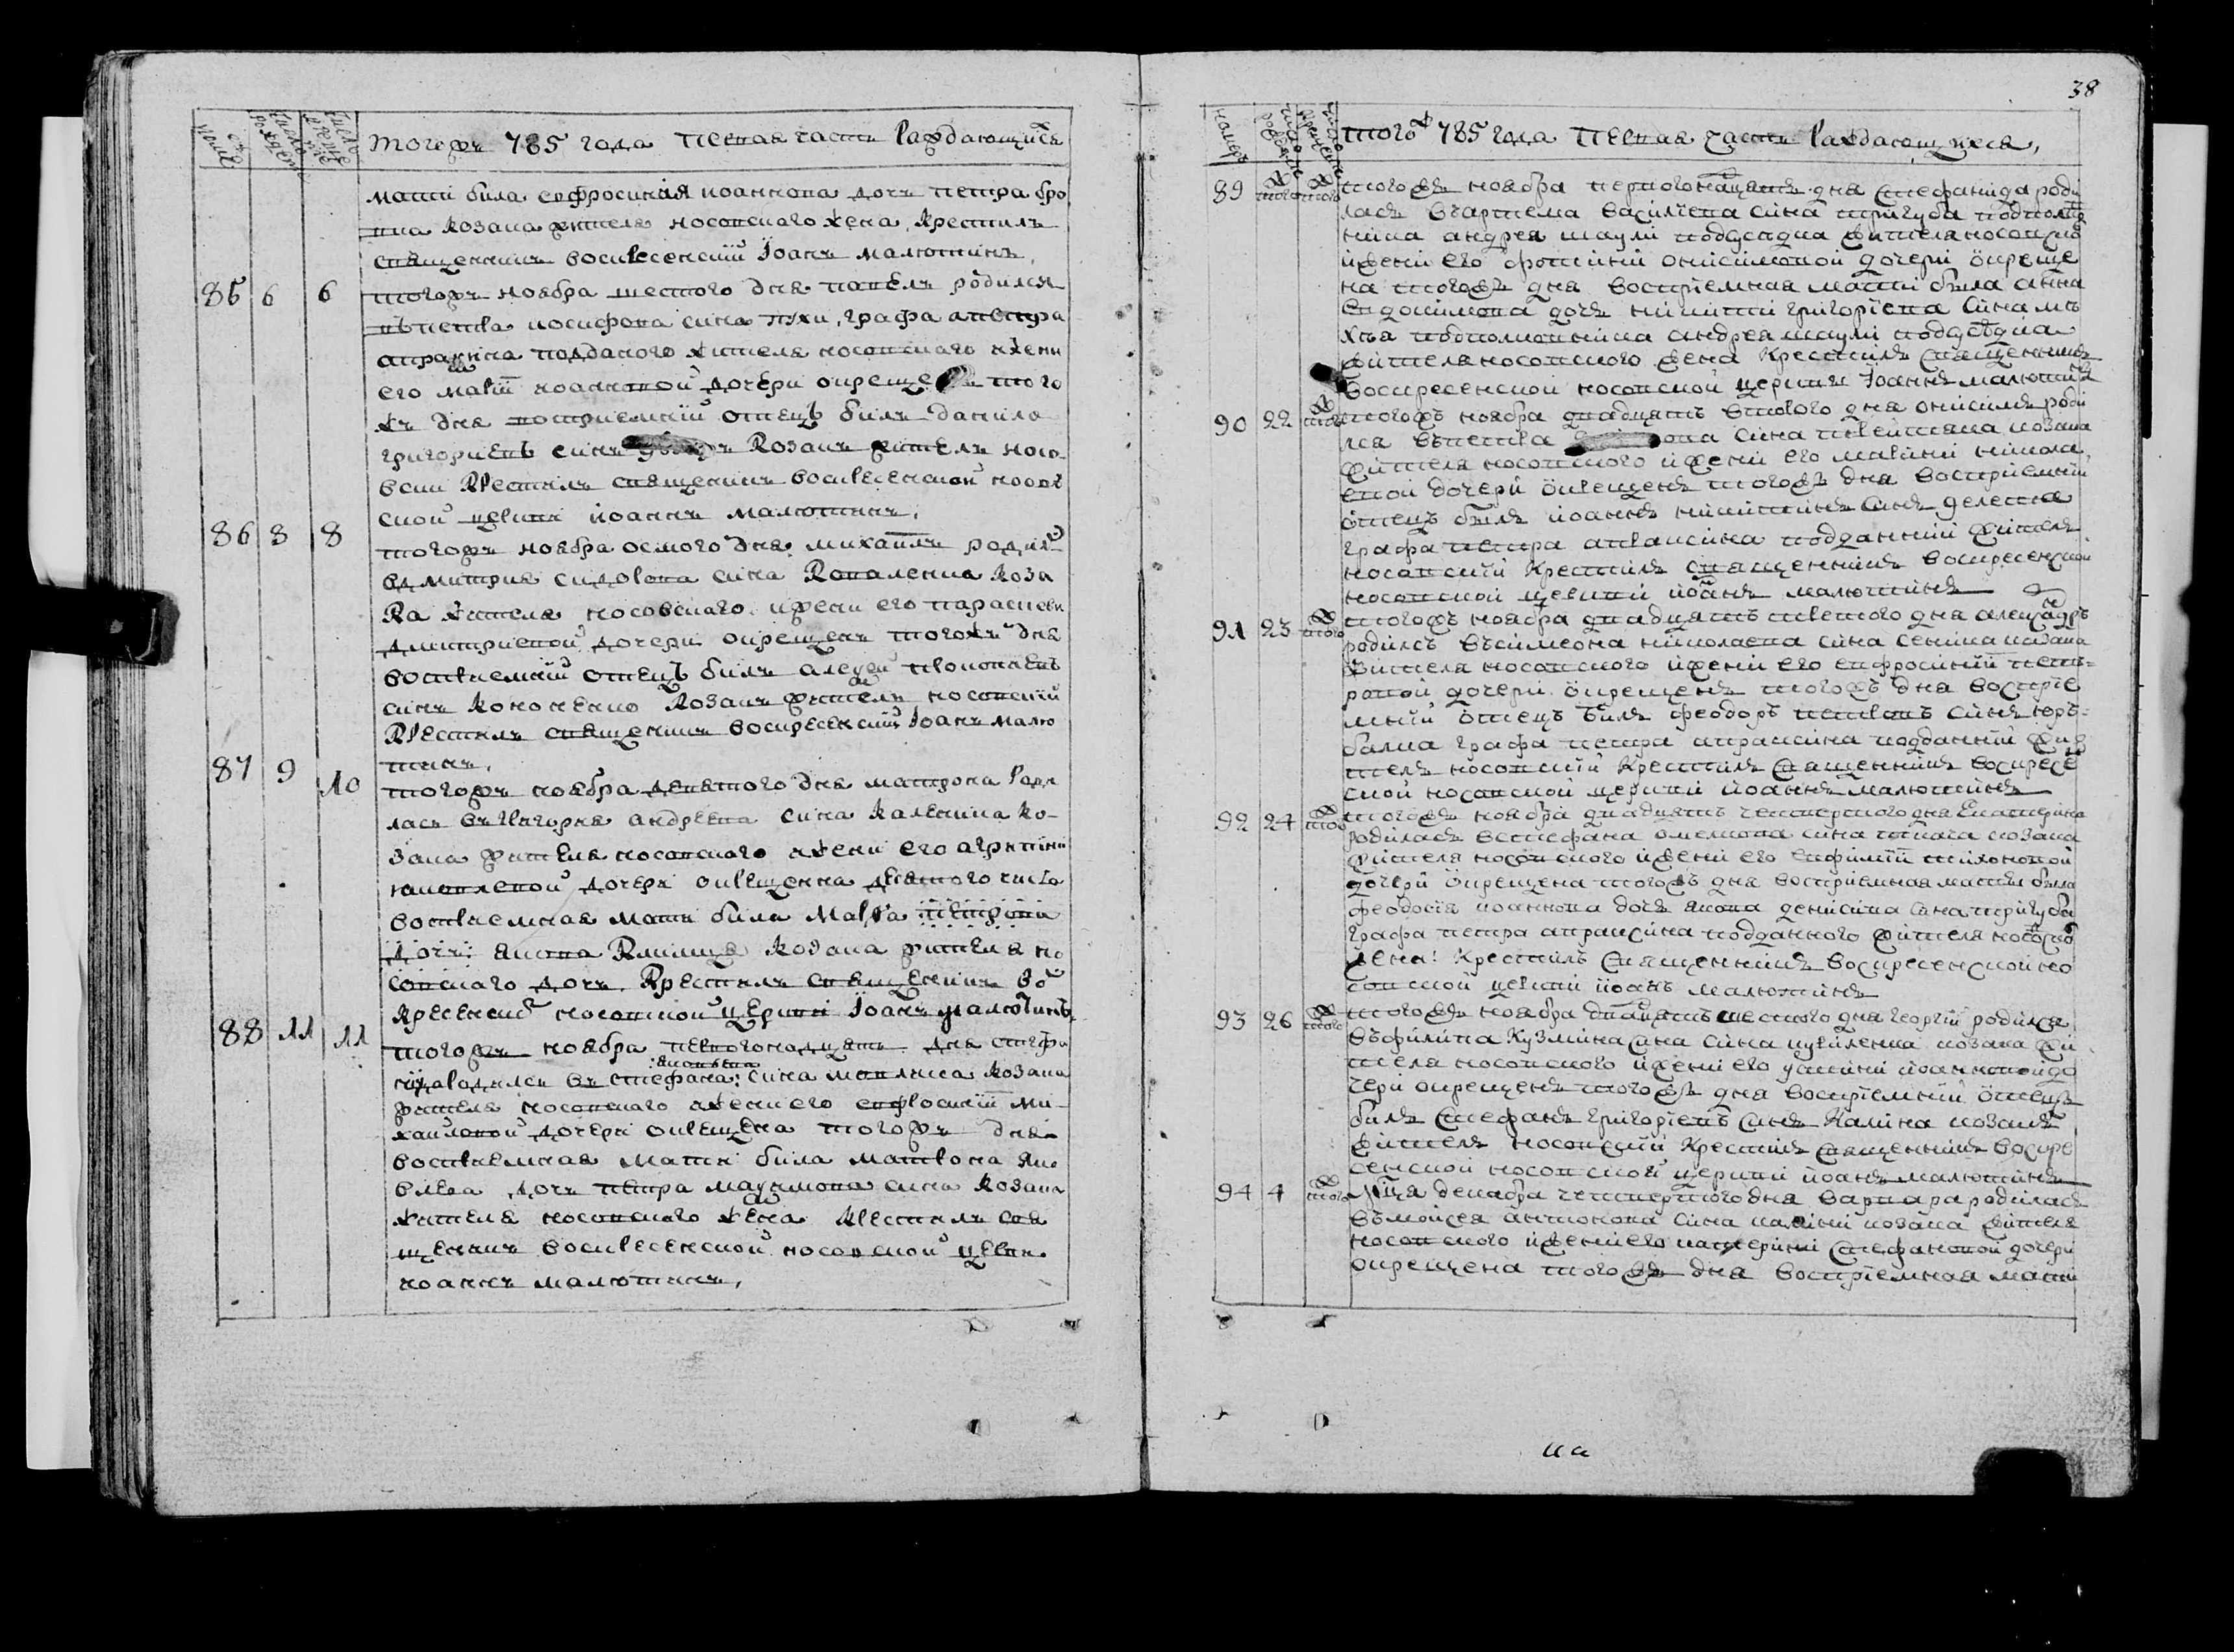 номеръ
число рожденія
число крещенія
тогожъ 785 года первая часть раждающихся
мати била ефросиния иоаннова дочь петра бро
вка козака жителя носовского жена, крестилъ
священникъ воскресенский Іоанъ малютинъ,
85 6 6 тогожъ ноября шестого дня павелъ родился
въ петра иосифова сина графа петра
апраксина подданого жителя носовского и жени
его иоанновой дочери окрещенъ того
жъ дня восприемний отецъ билъ данило
григориевъ синъ козакъ житель носо
вски крестилъ священникъ воскресенской носов
ской церкви иоаннъ малютинъ,
86 8 8 тогожъ ноября осмого дня михаилъ родил
в дмитрия сидорова сина коваленка коза
ка жителя носовского и жени его параскеви
дмитриевой дочери окрещенъ тогожъ дня
восприемний отецъ билъ алексей прокопиевъ
синъ кононенко козакъ житель носовский
крестилъ священникъ воскресенский Іоанъ малю
тинъ,
87 9 10 тогожъ ноября девятого дня матрона роди
лась въ григория андреева сина каленика ко-
зака жителя носовского и жени его агрипини
дочери окрещенна десятого числа
восприемная мати била марфа петрова
дочь: якова клими козака жителя но
совского дочь. Крестилъ священникъ во
кресенской носовской церкви Іоанъ малютинъ,
88 11 11 тогожъ ноября первогонадцять дня стефа
нида родилась въ стефана: сина козака
яковлева
жителя носовского и жени его евфросинии ми-
хайловой дочери окрещена тогожъ дня
восприемная мати била матрона яко
влева дочь петра максимова сина козака
жителя носовского жена крестилъ свя
щенникъ воскресенской носовской церкви
иоаннъ малютинъ,
38
номеръ
число рожденія
число крещенія
тогожъ 785 года первая часть раждающихся,
89 того того тогожъ ноября первогонадцять дня стефанида роди
лась въ артема василіева сина тригуба подпомощ
ника андрея шаули подсуседка жителя носовско
и жени его фотинии онисимовой дочери окреще
на тогожъ дня восприемная мати била анна
евдокимова дочь никити григоріева сина
подпомощника андрея шаули подсуседка
жителя носовского жена крестилъ священникъ
воскресенской носовской церкви Іоаннъ малютинъ
90 22 того тогожъ ноября двадцять второго дня онисимъ роди
лся въ петра сина козака
жителя носовского и жени его марини никола
евой дочери окрещенъ тогожъ дня восприемний
отецъ билъ иоаннъ никитинъ синъ
графа петра апраксина подданний житель
носовский крестилъ священникъ воскресенской
носовской церкви иоанъ малютинъ
91 23 того тогожъ ноября двадцять третого дня александръ
родилсъ въ симеона николаева сина козака
жителя носовского и жени его евфросинии пет-
ровой дочери окрещенъ тогожъ дня восприе
мний отецъ билъ феодоръ петровъ синъ
графа петра апраксина подданний жи
тель носовский крестилъ священникъ воскресе
ской носовской церкви иоаннъ малютинъ
92 24 того тогожъ ноября двадцять четвертого дня Екатерина
родилась въ стефана сина козака
жителя носовского и жени его евфимии тихоновой
дочери окрещена тогожъ дня восприемная мати била
феодосія иоаннова дочь якова денисина сина тригуба
графа петра апраксина подданного жителя носовско
жена: крестилъ священникъ воскресенской но
совской церкви иоанъ малютинъ
93 26 того тогожъ ноября двадцять шестого дня георгий родился
въ филипа кузмина сина сина козака жи
теля носовского и жени его устини иоанновой до
чери окрещенъ тогожъ дня восприемний отецъ
билъ стефанъ григоріевъ синъ калина козакъ
житель носовский крестилъ священникъ воскре
сенской носовской церкви иоанъ малютинъ
94 4 того м҃ца декабра четвертого дня варвара родилась
въ мойсея антонова сина козака жителя
носовского и жени его катерини стефановой дочери
окрещена тогожъ дня восприемная мати